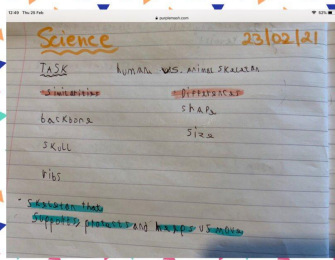 12:49 Thu 25 Feb
52%
Science 23/02/21
TASK humans VS. animal skeleton
Similarities Differences
shape
backbone
size
skull
ribs
- skeleton that
supports protects and helps us move